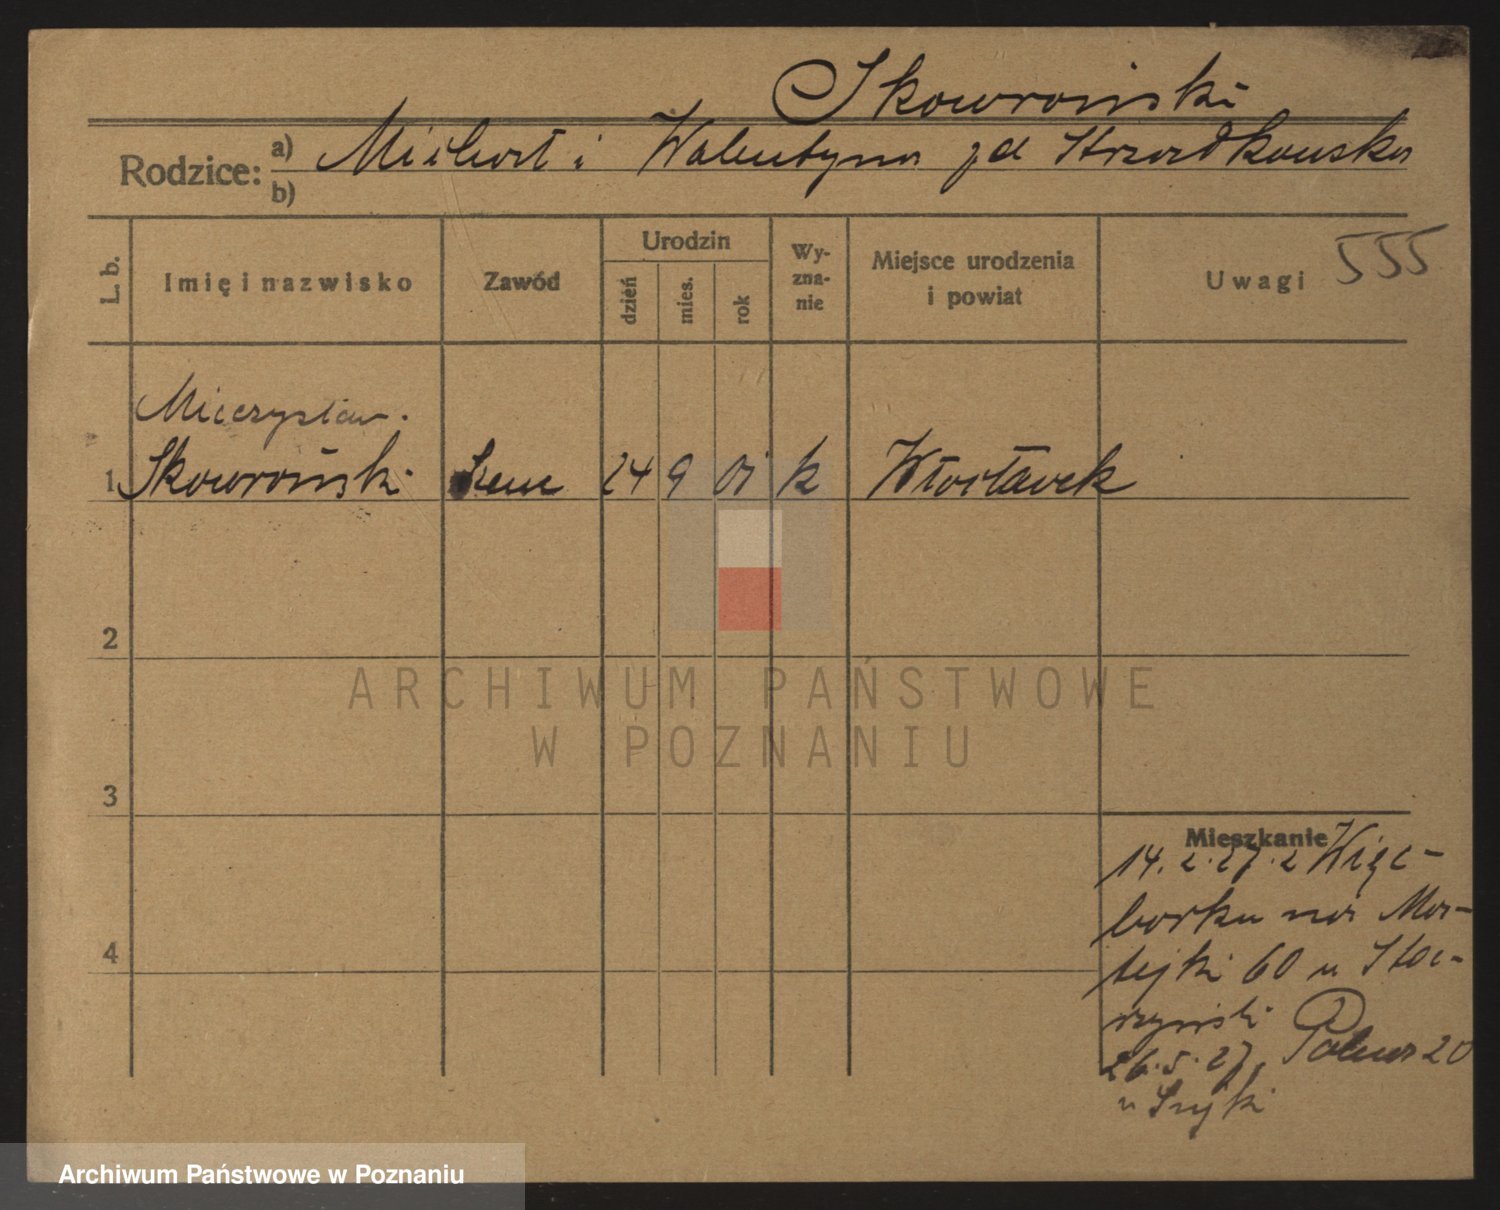 Skowroński
Rodzice: a) Michał i Walentyna zd Strzadkowska
b)
L. b. Imię i nazwisko Zawód Urodzin dzień mies. rok Wyznanie Miejsce urodzenia i powiat Uwagi 555
Mieczysław.
1 Skowroński 24 9 01 k Włocławek
2
ARCHIWUM PAŃSTWOWE
W POZNANIU
3
Mieszkanie
14.2.27 z Więc-
borku na Ma-
tejki 60 u Stac-
zyński
26.5.27. Polna 20
u
4
Archiwum Państwowe w Poznaniu